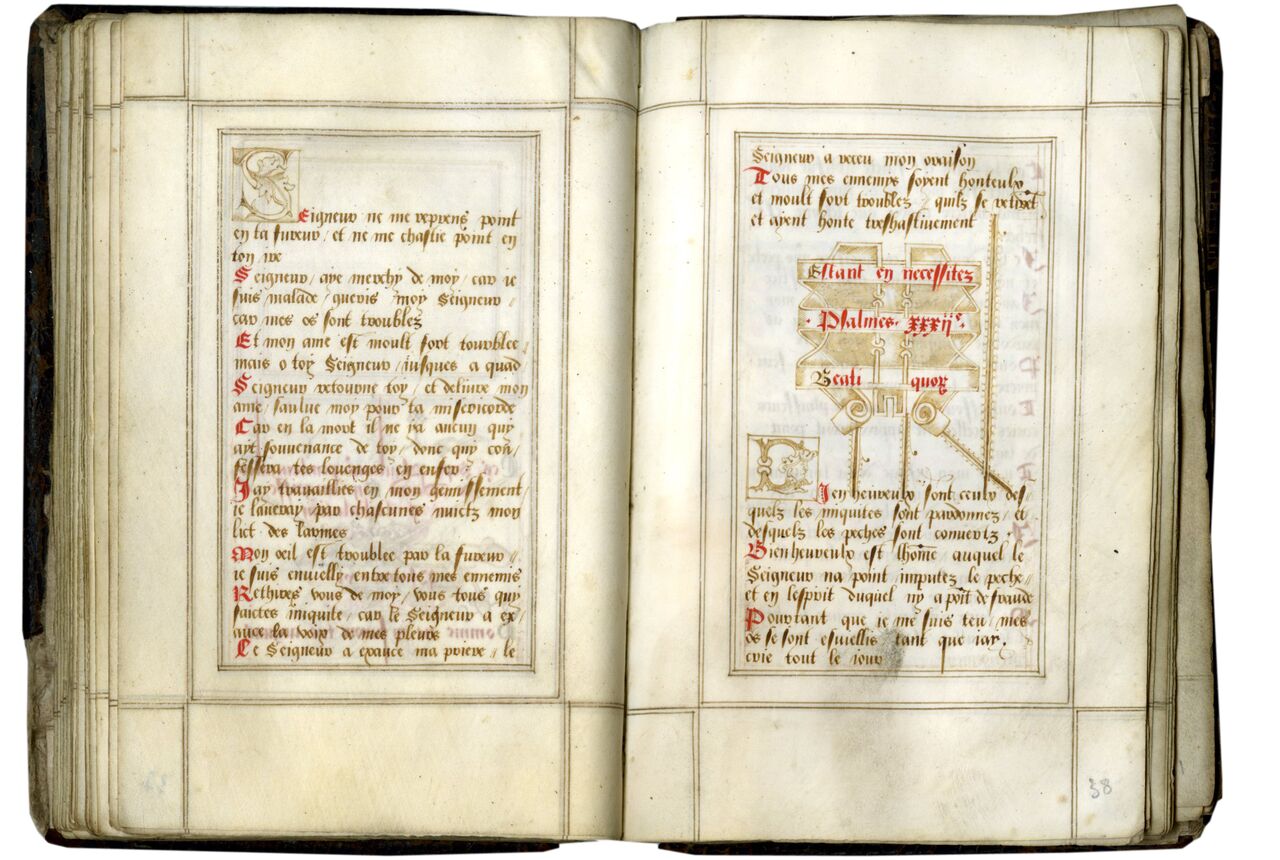 Seigneur ne me reprens point
en ta fureur / et ne me chastie point en
ton ire
Seigneur / aye merchy de moy / car ie
suis malade / gueris moy Seigneur //
car mes os sont troublez
Et mon ame est moult fort tourblee /
mais o toy Seigneur / iusques a quād
Seigneur retourne toy / et delivre mon
ame / saulue moy pour ta misericorde
Car en la mort il ne ya aucun quy
ayt souvenance de toy / donc quy con /
fessera tes louenges en enfer
Jay travaillies en mon gemissement /
ie laveray par chascunes nuictz mon
lict des larmes
Mon oeil est troublee par la fureur //
ie suis envielly entre tous mes ennemis
Rethires vous de moy / vous tous quy
faictes iniquite / car le Seigneur a ex /
auce la voix de mes pleurs
Le Seigneur a exauce ma priere // le
Seigneur a receu mon oraison
Tous mes ennemys soyent honteulx
et moult fort troublez / quilz se retirēt
et ayent honte treshastivement
Estant en necessitez
Psalmes XXXIIe
Beati quorum
Bien heureulx sont ceulx des /
quelz les iniquites sont pardonnez / et
desquelz les peches sont couvertz
Bien heureulx est lhōme / auquel le
Seigneur na point imputez le peche //
et en lesprit duquel ny a poīt de fraude
Pourtant que ie me suis teu / mes
os se sont envellis tant que iay /
crie tout le iour
38